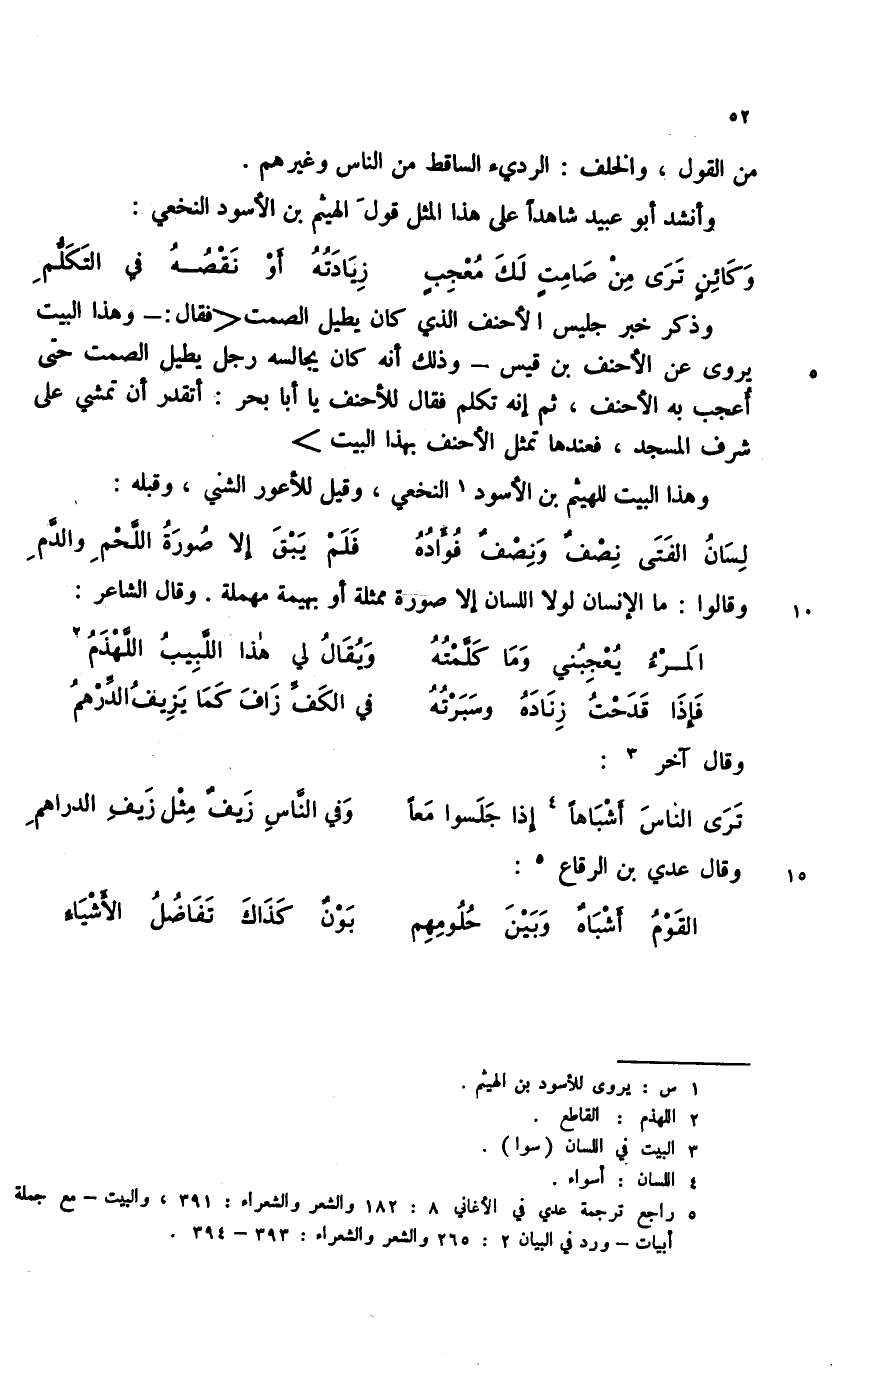 ٥٢
من القول ، والخلف : الرديء الساقط من الناس وغيرهم .
وأنشد أبو عبيد شاهداً على هذا المثل قولَ الهيثم بن الأسود النخعي :
وَكَائِنٍ تَرَى مِنْ صَامِتٍ لَكَ مُعْجِبٍ زِيَادَتُهُ أَوْ نَقْصُـــهُ في التَكَلُّمِ
وذكر خبر جليس الأحنف الذي كان يطيل الصمت < فقال : — وهذا البيت
٥ يروى عن الأحنف بن قيس — وذلك أنه كان يجالسه رجل يطيل الصمت حتى
أُعجب به الأحنف ، ثم إنه تكلم فقال للأحنف يا أبا بحر : أتقدر أن تمشي على
شرف المسجد ، فعندها تمثل الأحنف بهذا البيت >
وهذا البيت للهيثم بن الأسود ١ النخعي ، وقيل للأعور الشني ، وقبله :
لِسَانُ الفَتَى نِصْفٌ وَنِصْفٌ فُؤَادُهُ فَلَمْ يَبْقَ إلا صُورَةُ اللَّحْمِ والدَّمِ
١٠ وقالوا : ما الإنسان لولا اللسان إلا صورة ممثلة أو بهيمة مهملة . وقال الشاعر :
المَـرْءُ يُعْجِبُني وَمَا كَلَّمْتُهُ وَيُقَالُ لي هٰذا اللَّبِيبُ اللَّهْذَمُ ٢
فَإِذَا قَدَحْتُ زِنَادَهُ وسَبَرْتُهُ في الكَفِّ زَافَ كَمَا يَزِيفُ الدِّرْهمُ
وقال آخر ٣ :
تَرَى الناسَ أَشْبَاهاً ٤ إذا جَلَسوا مَعاً وَفي النَّاسِ زَيفٌ مِثْل زَيفِ الدراهمِ
١٥ وقال عدي بن الرقاع ٥ :
القَوْمُ أَشْبَاهٌ وَبَيْنَ حُلُومِهِم بَوْنٌ كَذَاكَ تَفَاضُلُ الأَشْيَاءِ
١ س : يروى للأسود بن الهيثم .
٢ اللهذم : القاطع .
٣ البيت في اللسان (سوا) .
٤ اللسان : أسواء .
٥ راجع ترجمة عدي في الأغاني ٨ : ١٨٢ والشعر والشعراء : ٣٩١ ، والبيت — مع جملة
أبيات — ورد في البيان ٢ : ٢٦٥ والشعر والشعراء : ٣٩٣ — ٣٩٤ .